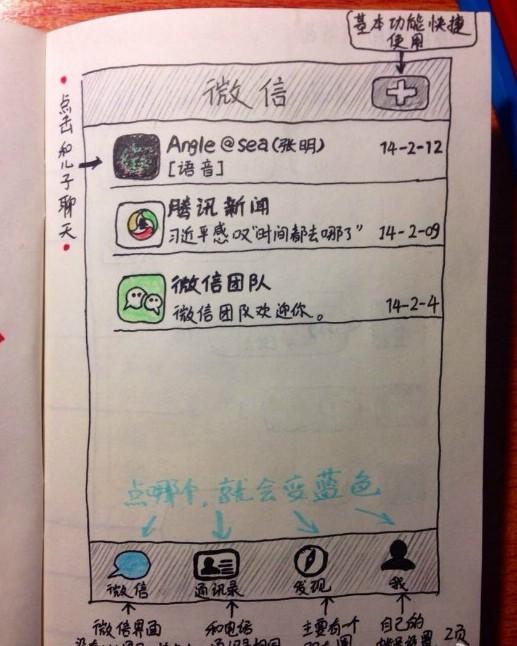 基本功能快捷
使用
微信
点击和儿子聊天
Angle@sea(张明)
14-2-12
[语音]
腾讯新闻
习近平感叹“时间都去哪了”
14-2-09
微信团队
微信团队欢迎你。
14-2-4
点哪个,就会变蓝色
微信
通讯录
发现
我
微信界面
和电话
主要有一个
自己的
2页